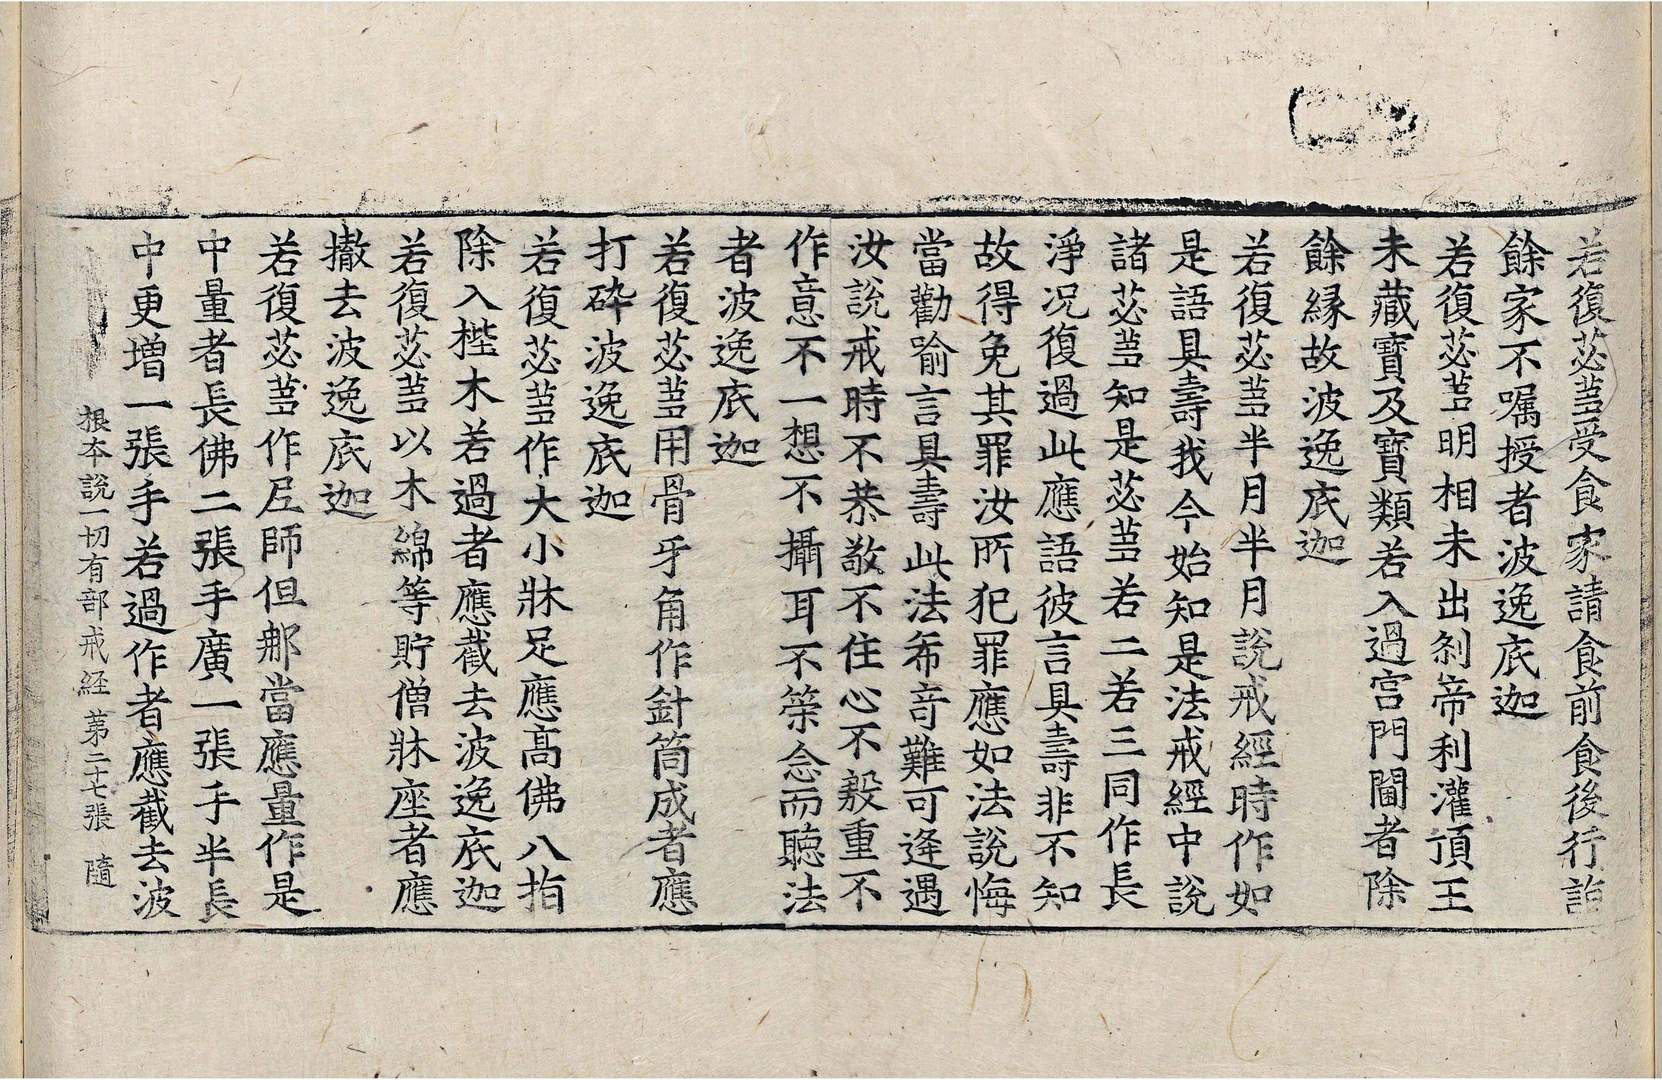 若復苾芻受食家請食前食後行詣
餘家不囑授者波逸底迦
若復苾芻明相未出刹帝利灌頂王
未藏寶及寶類若入過宮門閫者除
餘縁故波逸底迦
若復苾芻半月半月說戒經時作如
是語具壽我今始知是法戒經中說
諸苾芻知是苾芻若二若三同作長
淨况復過此應語彼言具壽非不知
故得免其罪汝所犯罪應如法說悔
當勸喻言具壽此法希奇難可逢遇
汝說戒時不恭敬不住心不殷重不
作意不一想不攝耳不策念而聽法
者波逸底迦
若復苾芻用骨牙角作針筒成者應
打碎波逸底迦
若復苾芻作大小牀足應高佛八指
除入梐木若過者應截去波逸底迦
若復苾芻以木綿等貯僧牀座者應
撤去波逸底迦
若復苾芻作尼師但那當應量作是
中量者長佛二張手廣一張手半長
中更增一張手若過作者應截去波
根本說一切有部戒經 第二十七張 隨